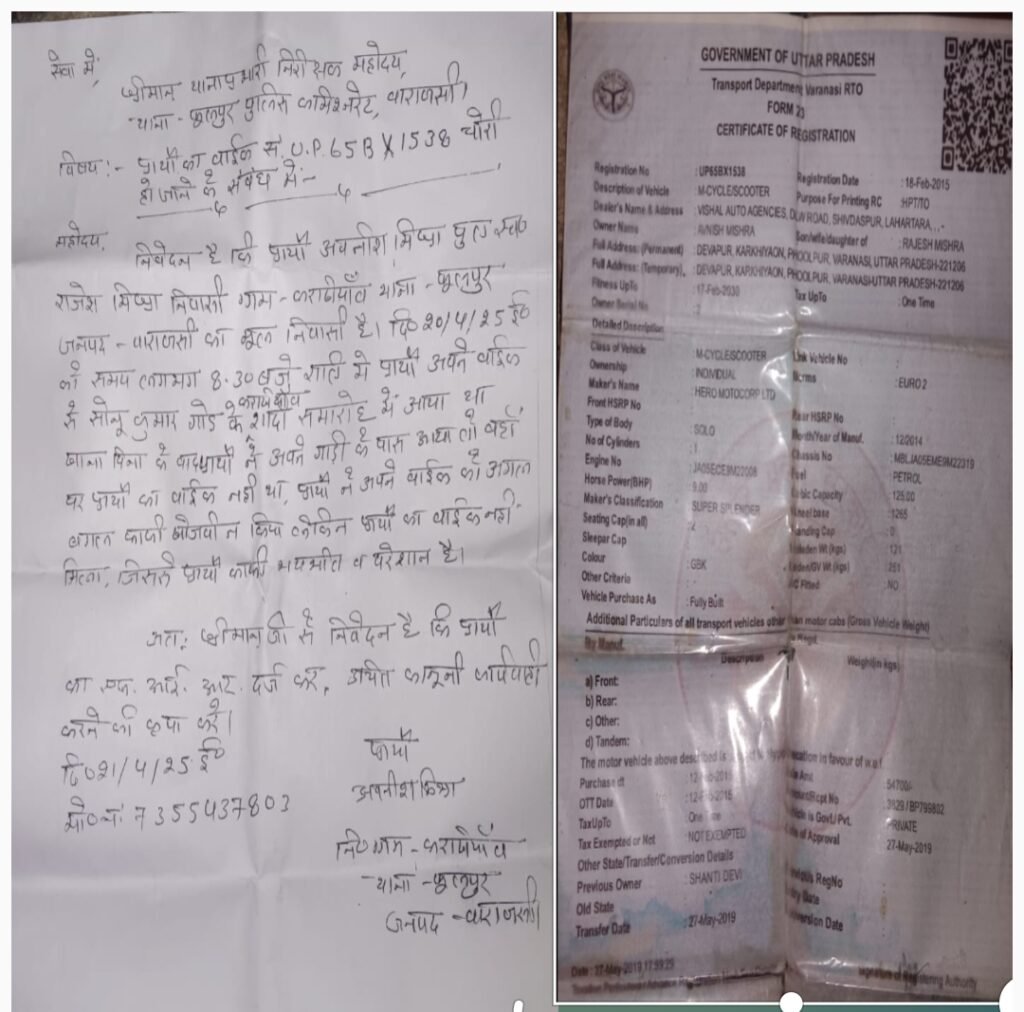 सेवा में,
श्रीमान् थानाप्रभारी निरीक्षक महोदय,
थाना - फूलपुर पुलिस कमिश्नरेट, वाराणसी।
विषय :- प्रार्थी का बाईक सं. U.P. 65 B X 1538 चोरी
हो जाने के संबंध में :-
महोदय,
निवेदन है कि प्रार्थी अवनीश मिश्रा पुत्र स्व०
राजेश मिश्रा निवासी ग्राम - करखियाँव थाना - फूलपुर
जनपद - वाराणसी का मूल निवासी है। दि० 20/4/25 ई०
को समय लगभग 8.30 बजे रात्रि मे प्रार्थी अपने बाईक
से सोनू कुमार गोड़ के करखियाँव शादी समारोह में आया था
खाना पिना के बाद प्रार्थी ने अपने गाड़ी के पास आया तो वहाँ
पर प्रार्थी का बाईक नही था, प्रार्थी ने अपने बाईक को अगल
बगल काफी खोजबीन किया लेकिन प्रार्थी का बाईक नही
मिला, जिससे प्रार्थी काफी भयभीत व परेशान है।
अतः श्रीमान् जी से निवेदन है कि प्रार्थी
का एफ. आई. आर. दर्ज कर, उचित कानूनी कार्यवाही
करने की कृपा करें।
दि० 21/4/25 ई०
मो० नं 7355437803
प्रार्थी
अवनीश मिश्रा
नि० ग्राम - करखियाँव
थाना - फूलपुर
जनपद - वाराणसी।
GOVERNMENT OF UTTAR PRADESH
Transport Department Varanasi RTO
FORM 23
CERTIFICATE OF REGISTRATION
Registration No : UP65BX1538 Registration Date : 18-Feb-2015
Description of Vehicle : M-CYCLE/SCOOTER Purpose For Printing RC : HPT/TO
Dealer's Name & Address : VISHAL AUTO AGENCIES, DLW ROAD, SHIVDASPUR, LAHARTARA, , -
Owner Name : AVNISH MISHRA Son/wife/daughter of : RAJESH MISHRA
Full Address: (Permanent) : DEVAPUR, KARKHIYAON, PHOOLPUR, VARANASI, UTTAR PRADESH-221206
Full Address: (Temporary), : DEVAPUR, KARKHIYAON, PHOOLPUR, VARANASI-UTTAR PRADESH-221206
Fitness UpTo : 17-Feb-2030 Tax UpTo : One Time
Owner Serial No : 2
Detailed Description
Class of Vehicle : M-CYCLE/SCOOTER Link Vehicle No
Ownership : INDIVIDUAL Norms : EURO 2
Maker's Name : HERO MOTOCORP LTD
Front HSRP No Rear HSRP No
Type of Body : SOLO Month/Year of Manuf. : 12/2014
No of Cylinders : 1 Chassis No : MBLJA05EME9M22319
Engine No : JA05ECE9M22008 Fuel : PETROL
Horse Power(BHP) : 9.00 Cubic Capacity : 125.00
Maker's Classification : SUPER SPLENDER Wheel base : 1265
Seating Cap(in all) : 2 Standing Cap : 0
Sleepar Cap Unladen Wt (kgs) : 121
Colour : GBK Laden/GV Wt (kgs) : 251
Other Criteria : AC Fitted : NO
Vehicle Purchase As : Fully Built
Additional Particulars of all transport vehicles other than motor cabs (Gross Vehicle Weight)
By Manuf. Regd.
Description Weight(in kgs)
a) Front:
b) Rear:
c) Other:
d) Tandem:
The motor vehicle above described is subject to Hypothecation in favour of w.e.f.
Purchase dt : 12-Feb-2015 Sale Amt : 54700/-
OTT Date : 12-Feb-2015 Amount/Rcpt No : 3829 / BP799802
TaxUpTo : One Time Vehicle is Govt./ Pvt. : PRIVATE
Tax Exempted or Not : NOT EXEMPTED Date of Approval : 27-May-2019
Other State/Transfer/Conversion Details
Previous Owner : SHANTI DEVI Previous RegNo
Old State Entry Date
Transfer Date : 27-May-2019 Conversion Date
Date : 27-May-2019 17:59:29 Signature of Registering Authority